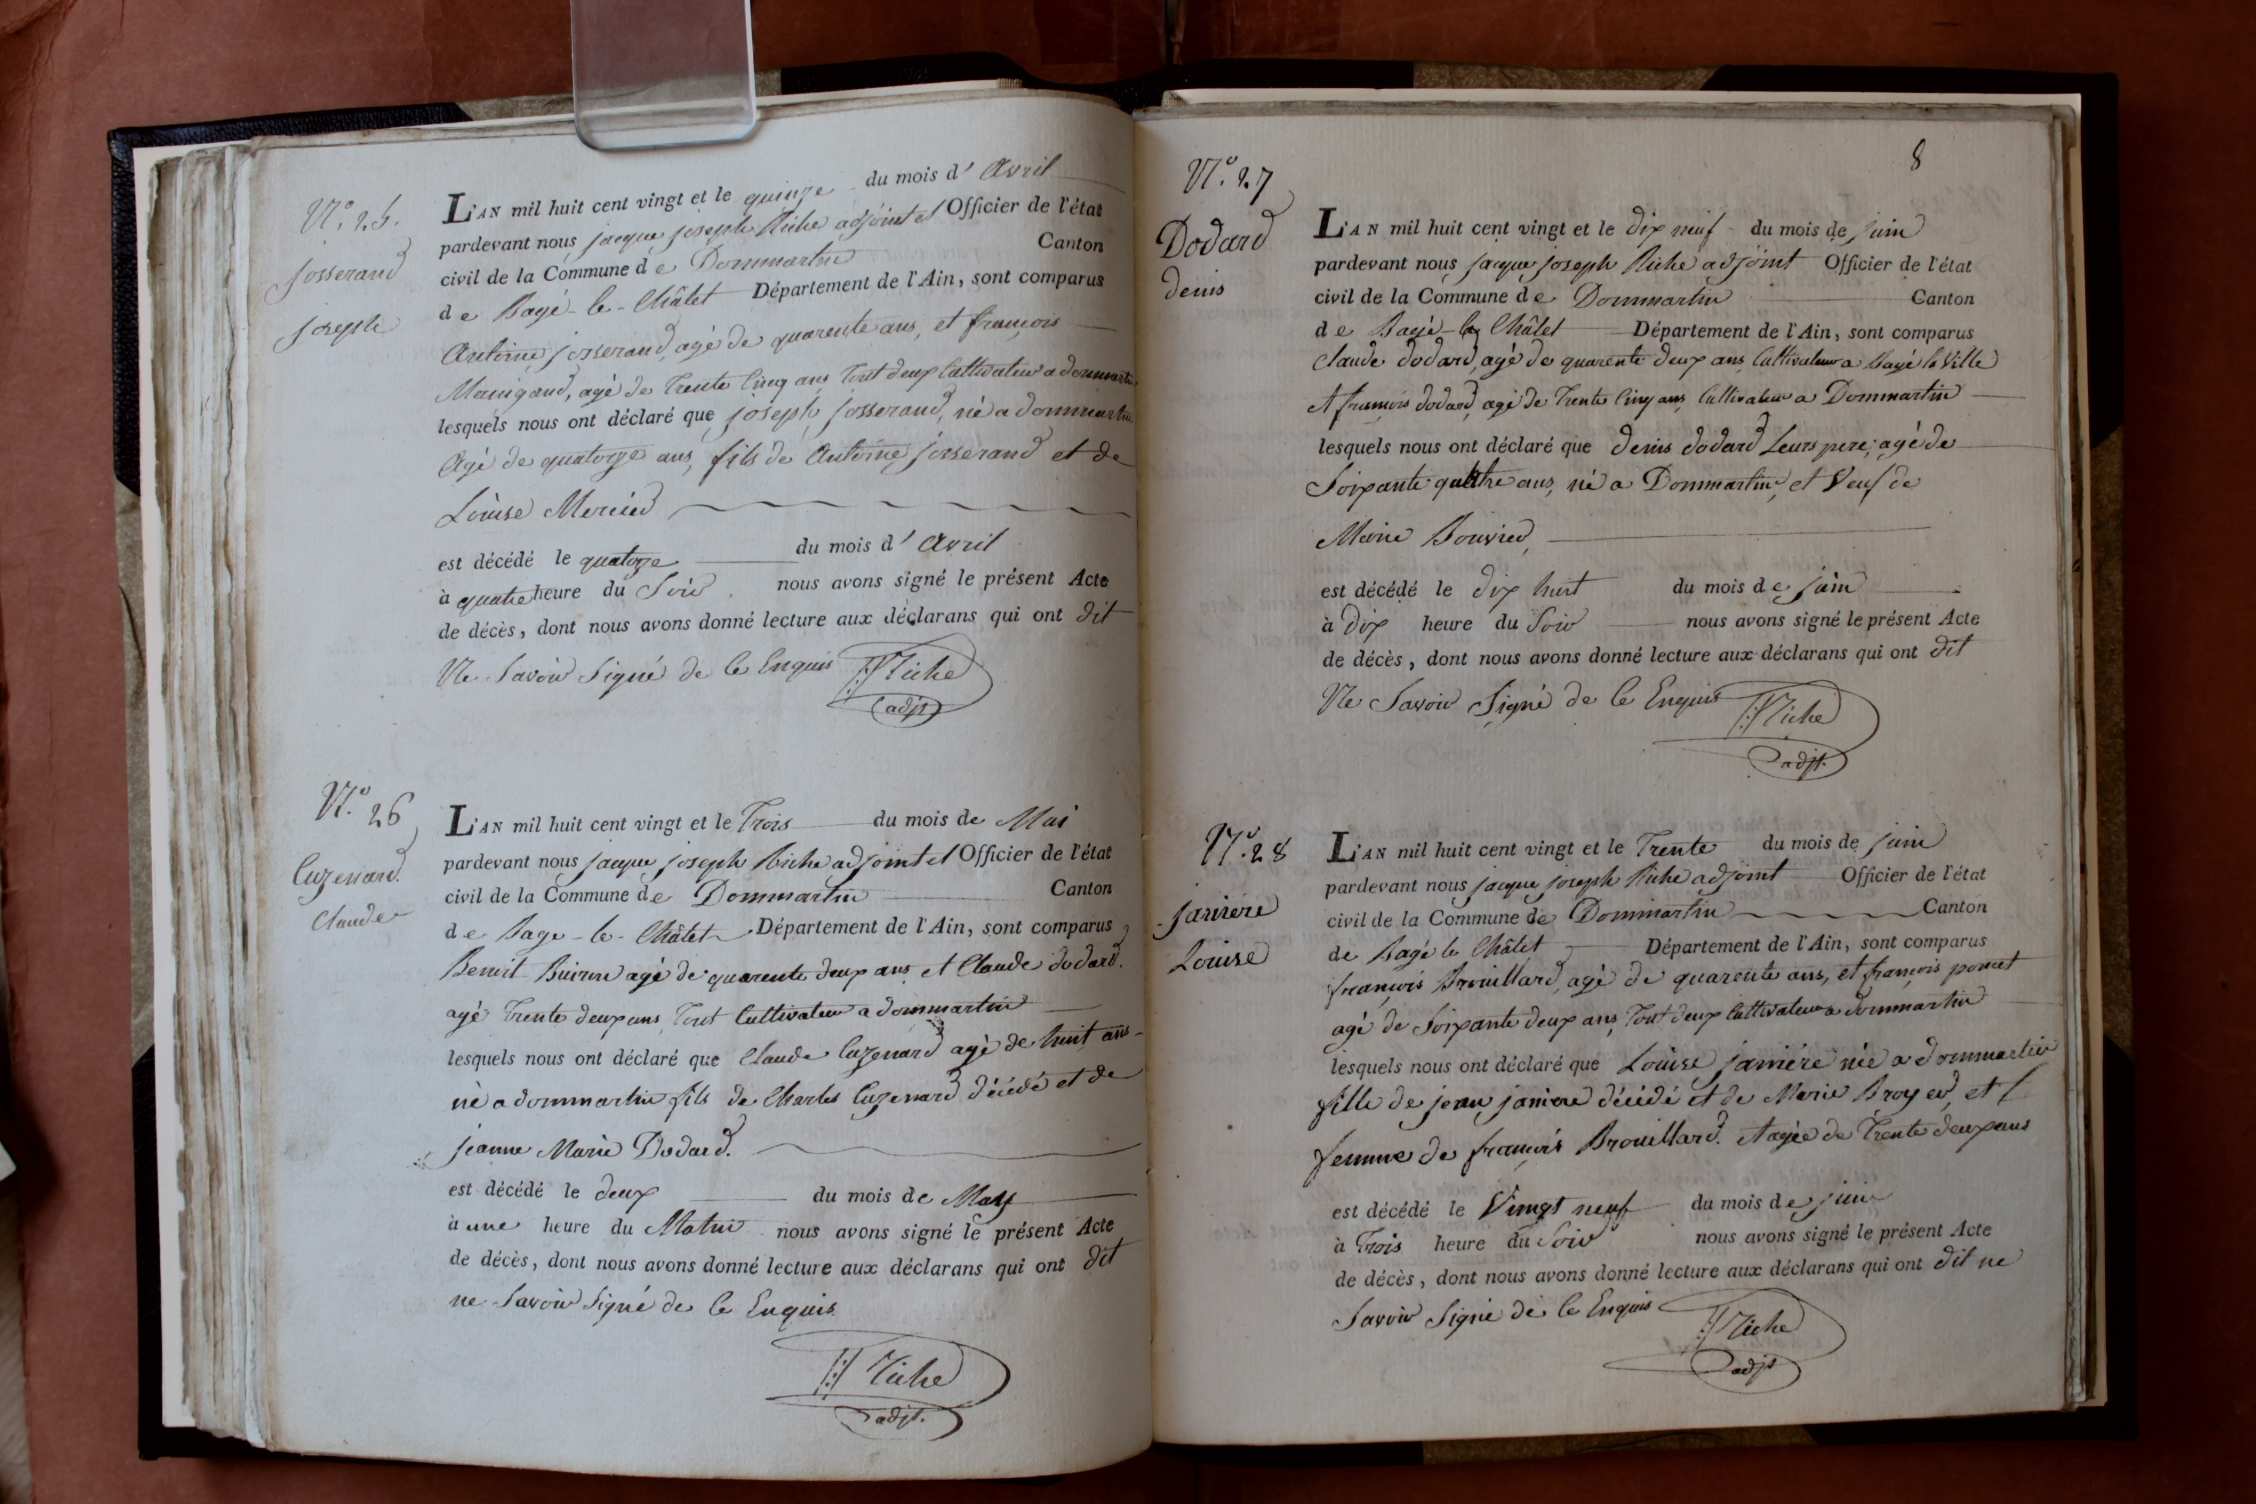 N.o 25.
Josserand
joseph
L'AN mil huit cent vingt et le quinze du mois d' Avril
pardevant nous jacque joseph Riche adjoint et Officier de l'état
civil de la Commune de Dommartin Canton
de Bagé-le-Châtel Département de l'Ain, sont comparus
Antoine josserand, agé de quarente ans, et françois
agé de Trente Cinq ans Tout deux Cultivateur a dommartin
lesquels nous ont déclaré que joseph josserand, né a dommartin
Agé de quatorze ans, fils de Antoine josserand et de
Louise Mercier
est décédé le quatorze du mois d' Avril
à quatre heure du Soir nous avons signé le présent Acte
de décès, dont nous avons donné lecture aux déclarans qui ont dit
Ne Savoir Signé de Ce Enquis Riche
adjt
N.o 26
Cuzenard.
Claude
L'AN mil huit cent vingt et le Trois du mois de Mai
pardevant nous jacque joseph Riche adjoint et Officier de l'état
civil de la Commune de Dommartin Canton
de Bage-le-Châtel Département de l'Ain, sont comparus
Benoit Buiron agé de quarente deux ans et Claude dodard.
agé Trente deux ans Tout Cultivateur a dommartin
lesquels nous ont déclaré que Claude Cuzenard agé de huit ans
né a dommartin fils de Charles Cuzenard décédé et de
jeanne Marie Dodard.
est décédé le deux du mois de May
à une heure du Matin nous avons signé le présent Acte
de décès, dont nous avons donné lecture aux déclarans qui ont dit
ne Savoir Signé de Ce Enquis
Riche
adjt.
8
N.o 27
Dodard
denis
L'AN mil huit cent vingt et le dix neuf du mois de juin
pardevant nous jacque joseph Riche adjoint Officier de l'état
civil de la Commune de Dommartin Canton
de Bagé-le Châtel Département de l'Ain, sont comparus
Claude dodard, agé de quarente deux ans Cultivateur a Bagé la Ville
et françois dodard, agé de Trente Cinq ans Cultivateur a Dommartin
lesquels nous ont déclaré que denis dodard Leurs pere, agé de
Soixante quatre ans, né a Dommartin, et Veuf de
Marie Bouvier,
est décédé le dix huit du mois de juin
à Dix heure du Soir nous avons signé le présent Acte
de décès, dont nous avons donné lecture aux déclarans qui ont dit
Ne Savoir Signé de Ce Enquis Riche
adjt.
N.o 28
janiére
Louise
L'AN mil huit cent vingt et le Trente du mois de juin
pardevant nous jacque joseph Riche adjoint Officier de l'état
civil de la Commune de Dommartin Canton
de Bagé le Châtel Département de l'Ain, sont comparus
françois Brouillard, agé de quarente ans, et françois
agé de Soixante deux ans, Tout deux Cultivateur a dommartin
lesquels nous ont déclaré que Louise janiére née a dommartin
fille de jean janiere décédé et de Marie Broyer, et
femme de françois Brouillard. et agée de Trente deux ans
est décédé le Vingt neuf du mois de juin
à Trois heure du Soir nous avons signé le présent Acte
de décès, dont nous avons donné lecture aux déclarans qui ont dit ne
Savoir Signé de Ce Enquis Riche
adjt